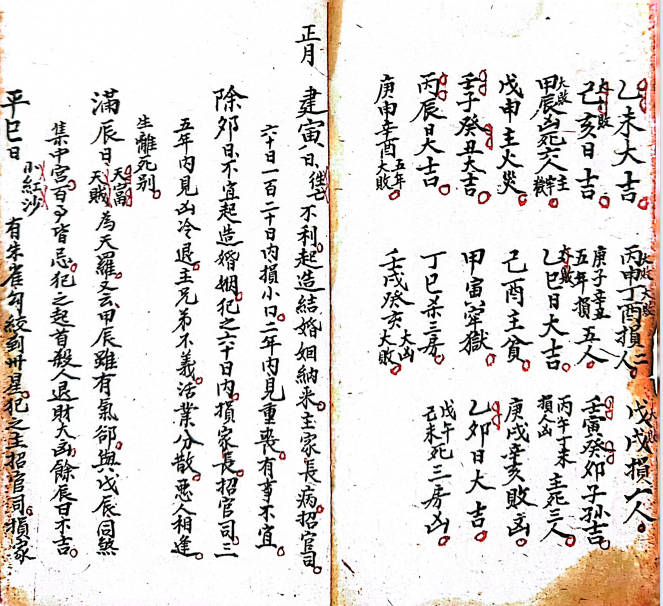 乙未大吉 丙申丁酉損人二 大敗 大敗 戊戌損六人 大敗
己亥日吉 大敗 庚子辛丑五年損五人 壬寅癸卯子孫吉
甲辰凶死六人 大敗 主 乙巳日大吉 大敗 丙午丁未損人凶主死三人
戊申主火災 己酉主貧 庚戌辛亥敗凶
壬子癸丑大吉 甲寅牢獄 乙卯日大吉
丙辰日大吉 丁巳杀三房 戊午己未死三房凶
庚申辛酉五年大敗 壬戌癸亥大凶大敗
正月 建寅日往亡不利起造結婚姻納采主家長病招官司
六十日一百二十日内損小口二年内見重喪有事不宜
除卯日不宜起造婚姻犯之六十日内損家長招官司三
五年内見凶冷退主兄弟不義活業分散惡人相逢
生離死别
滿辰日天富天賊為天羅又云甲辰雖有氣郤與戊辰同煞
集中宮百事皆忌犯之起首殺人退財大凶餘辰日不吉
平巳日小紅沙有朱雀勾絞到州星犯之主招官司損家